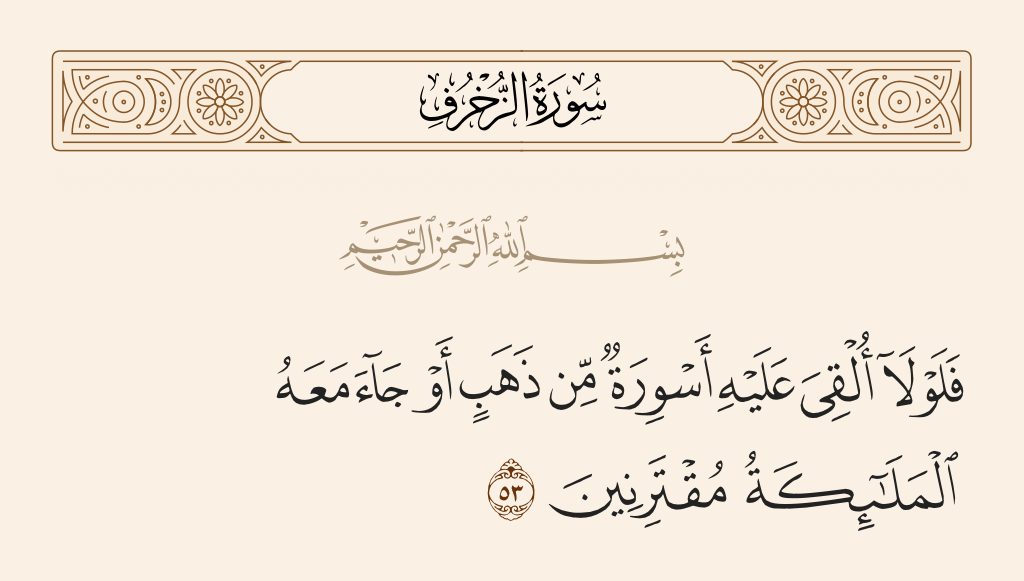 سُورَةُ الزُّخْرُفِ
بِسْمِ ٱللَّهِ ٱلرَّحْمَٰنِ ٱلرَّحِيمِ
فَلَوْلَآ أُلْقِىَ عَلَيْهِ أَسْوِرَةٌ مِّن ذَهَبٍ أَوْ جَآءَ مَعَهُ
ٱلْمَلَٰٓئِكَةُ مُقْتَرِنِينَ ٥٣